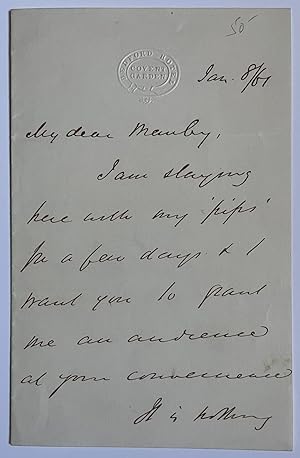 50
BEDFORD HOTEL
COVENT
GARDEN
Jan. 8/61
My dear Manby,
I am staying
here with my 'pips'
for a few days & I
want you to grant
me an audience
at your convenience
It is nothing